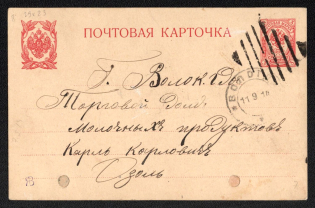 ПОЧТОВАЯ КАРТОЧКА
Г. Вологда
Торговой Домъ
Молочныхъ продуктовъ
Карлъ Карловичъ